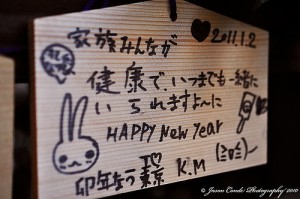 家族みんなが ♥2011.1.2
健康で、いつまでも一緒に
いられますよ〜に
HAPPY New Year
卯年なう I♡東京 K.M (≧▽≦)ノ
© Jason Conde Photography 2010